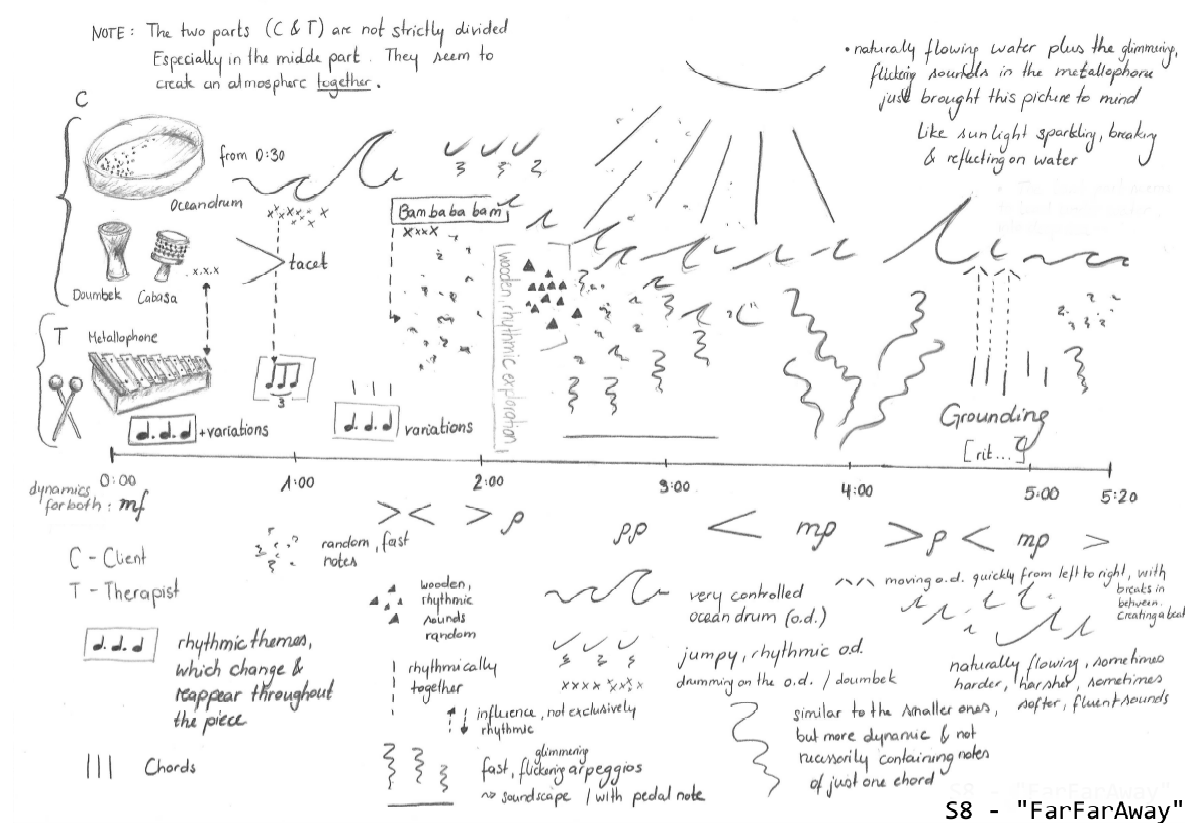 NOTE: The two parts (C & T) are not strictly divided
Especially in the midde part. They seem to
create an atmosphere together.
• naturally flowing water plus the glimmering,
flickering sounds in the metallophone
just brought this picture to mind
like sunlight sparkling, breaking
& reflecting on water
C
from 0:30
Oceandrum
Bam ba ba bam
tacet
Doumbek Cabasa
wooden, rhythmic exploration
T
Metallophone
3
+variations
variations
Grounding
[rit...]
0:00 1:00 2:00 3:00 4:00 5:00 5:20
dynamics
for both: mf
> < > p pp < mp > p < mp >
C - Client
T - Therapist
rhythmic themes,
which change &
reappear throughout
the piece
Chords
random, fast
notes
wooden,
rhythmic
sounds
random
rhythmically
together
influence, not exclusively
rhythmic
glimmering
fast, flickering arpeggios
soundscape / with pedal note
very controlled
ocean drum (o.d.)
jumpy, rhythmic o.d.
drumming on the o.d. / doumbek
similar to the smaller ones,
but more dynamic & not
necessarily containing notes
of just one chord
moving o.d. quickly from left to right, with
breaks in
between.
Creating a beat
naturally flowing, sometimes
harder, harsher, sometimes
softer, fluent sounds
S8 - "FarFarAway"